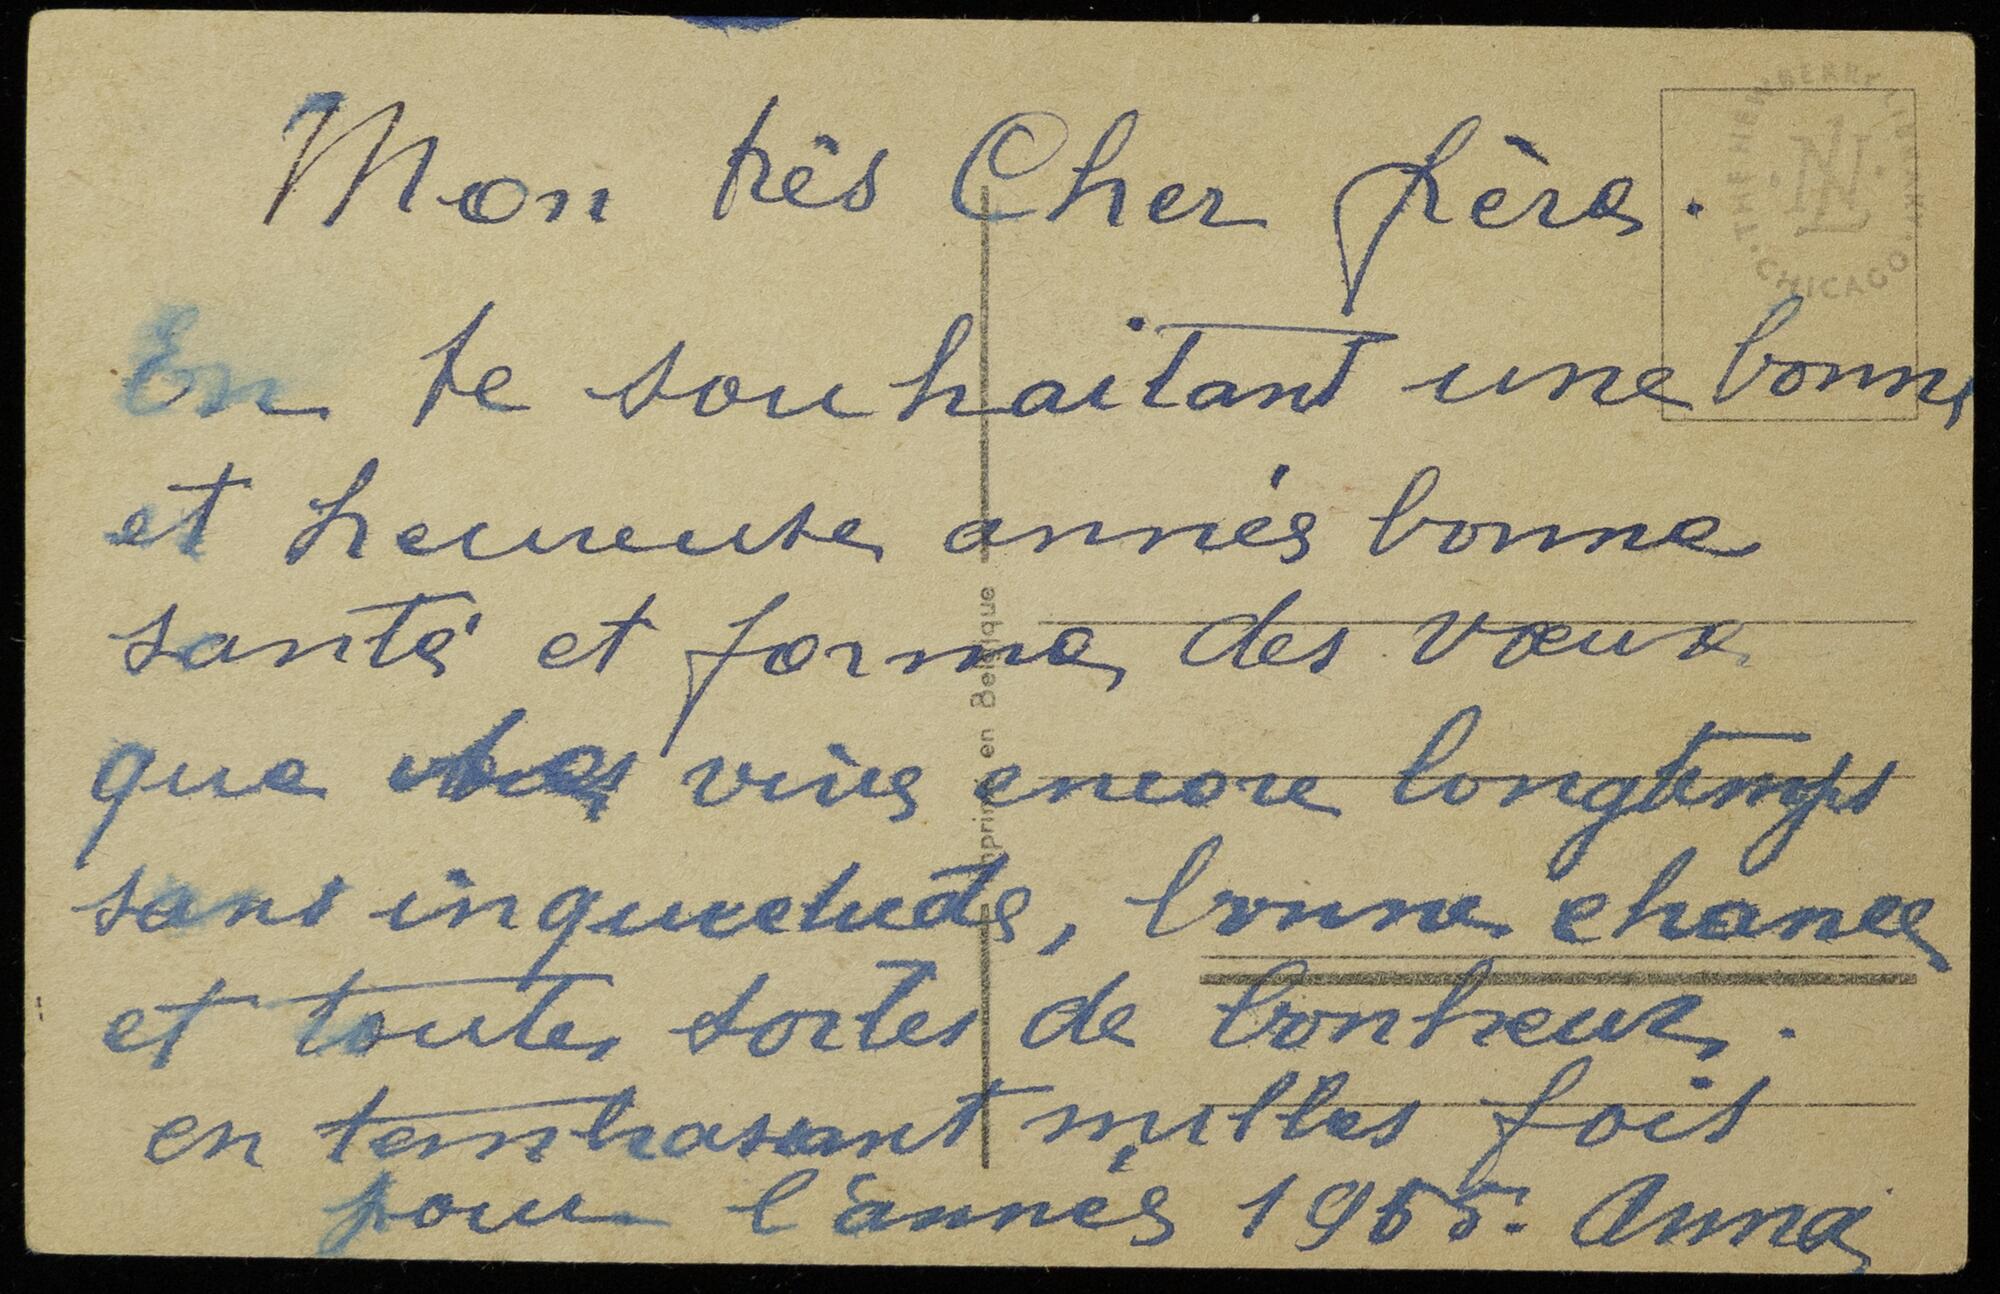 Mon três Cher frère.
En te souhaitant une bonne
et heureuse année bonne
santé et forme des vœux
que vives encore longtemps
sans inquietude, bonne chance
et toute sortes de bonheur.
en tembrasant milles fois
pour l'année 1955. Anna
Imprimé en Belgique
THE NEWBERRY LIBRARY
NL
CHICAGO